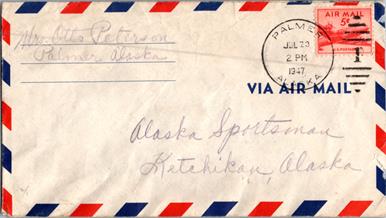 Mrs. Otto Peterson
Palmer Alaska
PALMER
JUL 23
2 PM
1947
ALASKA
AIR MAIL
5¢
U.S. POSTAGE
VIA AIR MAIL
Alaska Sportsman
Ketchikan, Alaska